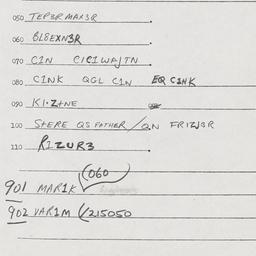 050 TEP3RMAX3R.
060 BL8EXN3R.
070 C1N CICIWAJTN.
080 C1NK QGL C1N EQ C1NK
090 K1·Z+NE
100 S+ERE QS FATHER / QN FRIZJ3R
110 R1ZUR3.
(060
901 MAR1K
902 VAR1M (/215050